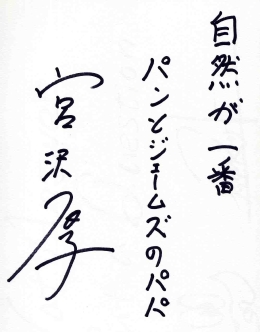 自然が一番
パンとジェームズのパパ
宮沢厚